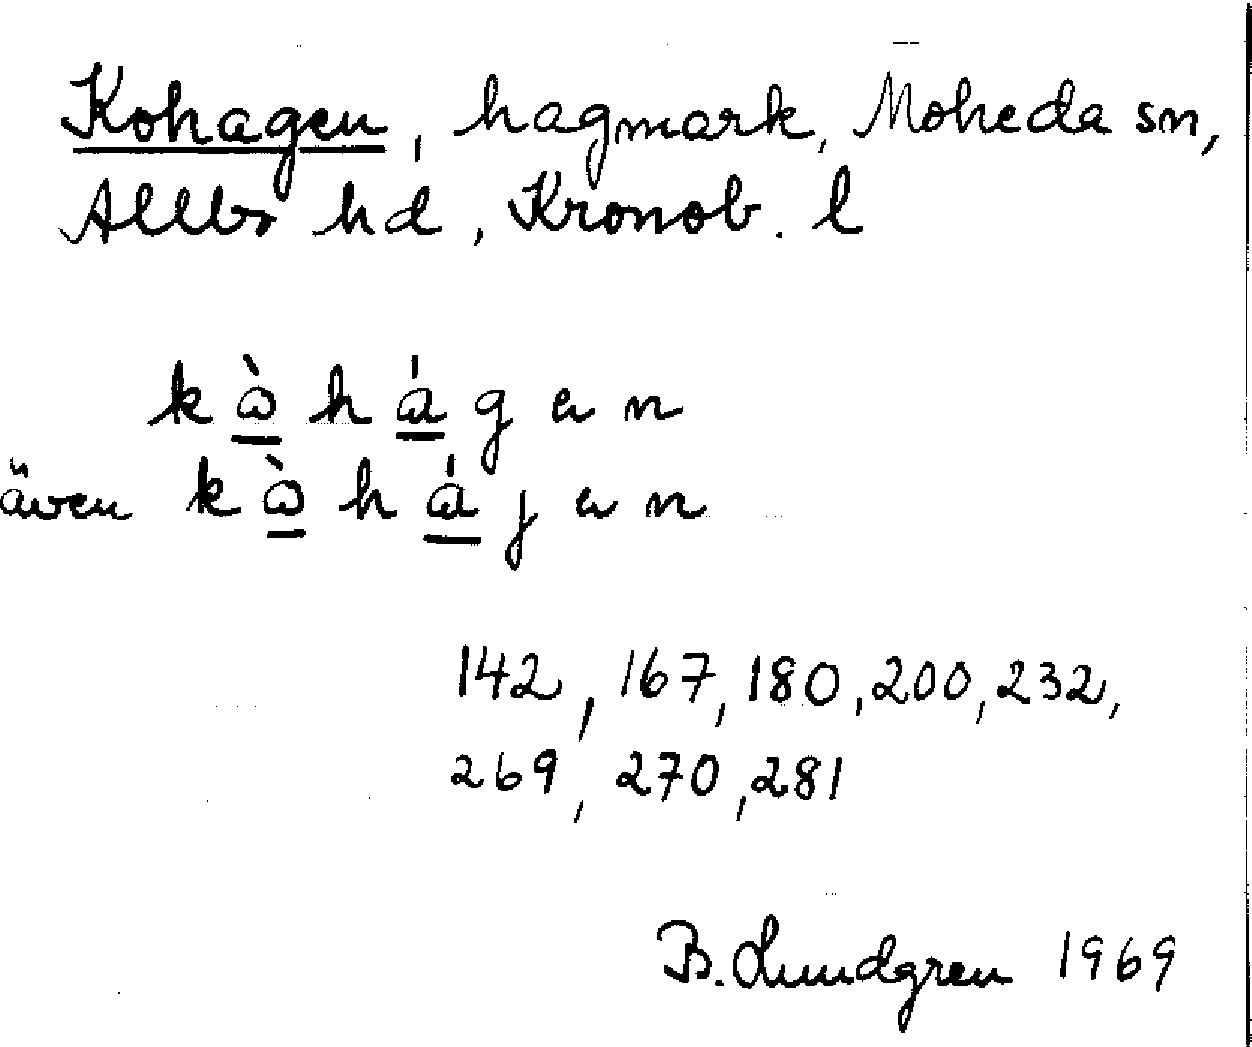 Kohagen, hagmark, Moheda sn,
Allbo hd, Kronob. l
kò̲há̲gen
även kò̲há̲jen
142, 167, 180, 200, 232,
269, 270, 281
B. Lundgren 1969